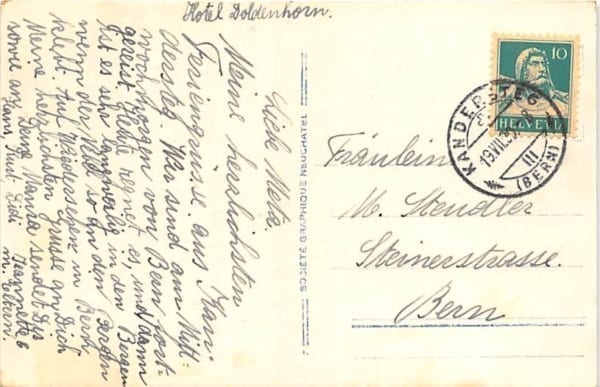 Hotel Doldenhorn.
Liebe Meta
Meine herzlichsten
Feriengrüsse aus Kan-
dersteg. Wir sind am Mitt-
wochmorgen von Bern fort-
gereist. Heute regnet es, und dann
ist es sehr langweilig in den Bergen
wenn der Nebel so an den Bergen
klebt. Auf Wiedersehen in Bern
Meine herzlichsten Grüsse an Dich
sowie an Deine Mama sendet Dir
Jeannette &
Hans, Kurt, Didi m. Eltern.
SOCIÉTÉ GRAPHIQUE NEUCHATEL
10
HELVETIA
KANDERSTEG
19.VII.3
III
(BERN)
Fräulein
M. Stendler
Steinerstrasse.
Bern